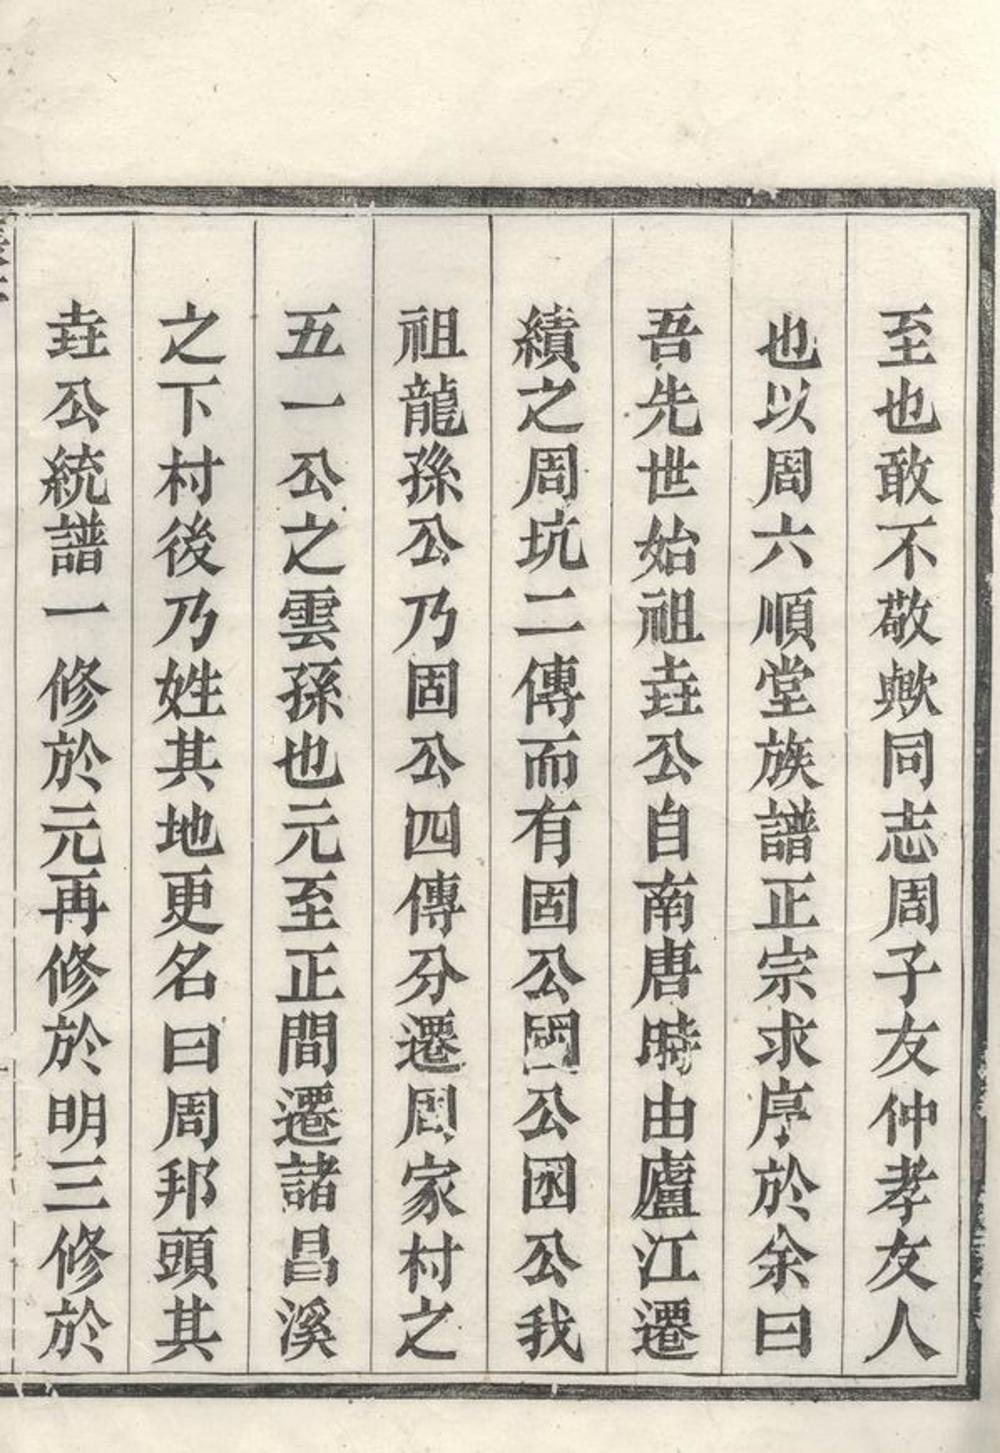 至也敢不敬歟同志周子友仲孝友人
也以周六順堂族譜正宗求序於余曰
吾先世始祖垚公自南唐時由廬江遷
績之周坑二傳而有固公國公囦公我
祖龍孫公乃固公四傳分遷周家村之
五一公之雲孫也元至正間遷諸昌溪
之下村後乃姓其地更名曰周邦頭其
垚公統譜一修於元再修於明三修於